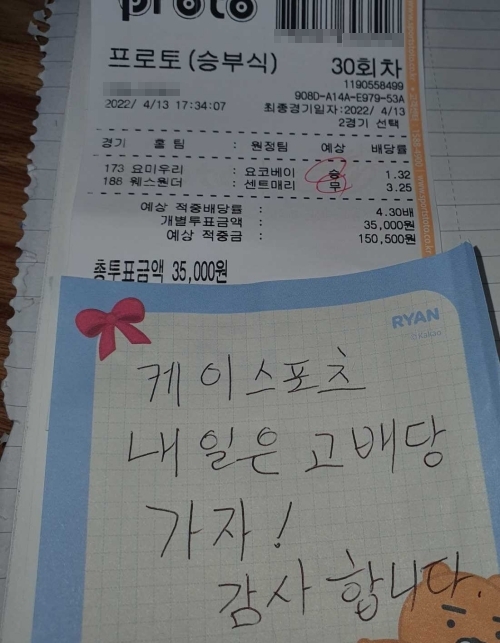 proto
프로토(승부식) 30회차
1190558499
908D-A14A-E979-53A
2022/ 4/13 17:34:07 최종경기일자:2022/ 4/13
2경기 선택
경기 홈 팀 : 원정팀 예상 배당률
173 요미우리 : 요코베이 승 1.32
188 웨스원더 : 센트매리 무 3.25
예상 적중배당률 : 4.30배
개별투표금액 : 35,000원
예상 적중금 : 150,500원
총투표금액 35,000원
RYAN
케이스포츠
내일은 고배당
가자!
감사합니다.